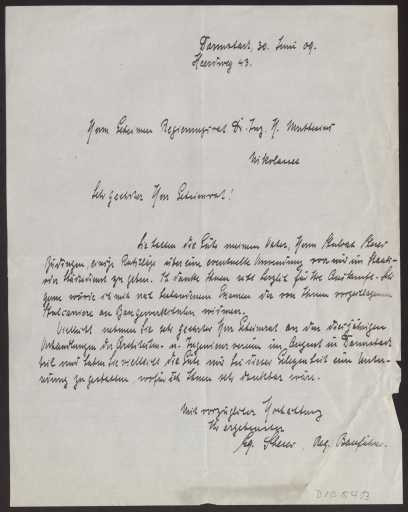 Darmstadt, 30. Juni 09.
Heerdweg 43.
Herrn Geheimen Regierungsrat Dr. Ing. H. Muthesius
Nikolassee
Sehr geehrter Herr Geheimrat!
Sie hatten die Güte meinem Vater, Herrn
einige Ratschläge über eine eventuelle Verwendung von mir im Staats-
zu geben. Ich danke Ihnen recht herzlich für Ihre Auskunft.
gerne würde ich mich nach bestandenem Examen der von Ihnen vorgeschlagenen
an Baugewerkschulen widmen.
Vielleicht nehmen Sie sehr geehrter Herr Geheimrat an den diesjährigen
Verhandlungen der Architekten- u. Ingenieurvereine im August in Darmstadt
teil und haben Sie vielleicht die Güte mir bei dieser Gelegenheit eine Unter-
zu gestatten, wofür ich Ihnen sehr dankbar wäre.
Mit vorzüglicher Hochachtung
Ihr ergebenster
Reg. Bauführer.